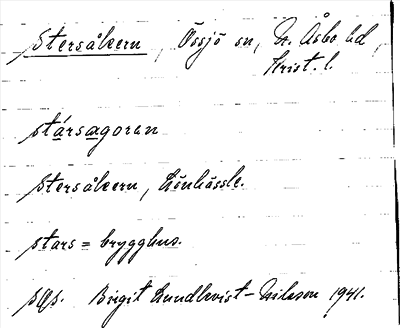 Stersåkern, Össjö sn, N. Åsbo hd,
Krist. l.
stársagoran
Stersåkern, Lönhässle.
stars = brygghus.
Birgit Lundkvist-Nilsson 1941.